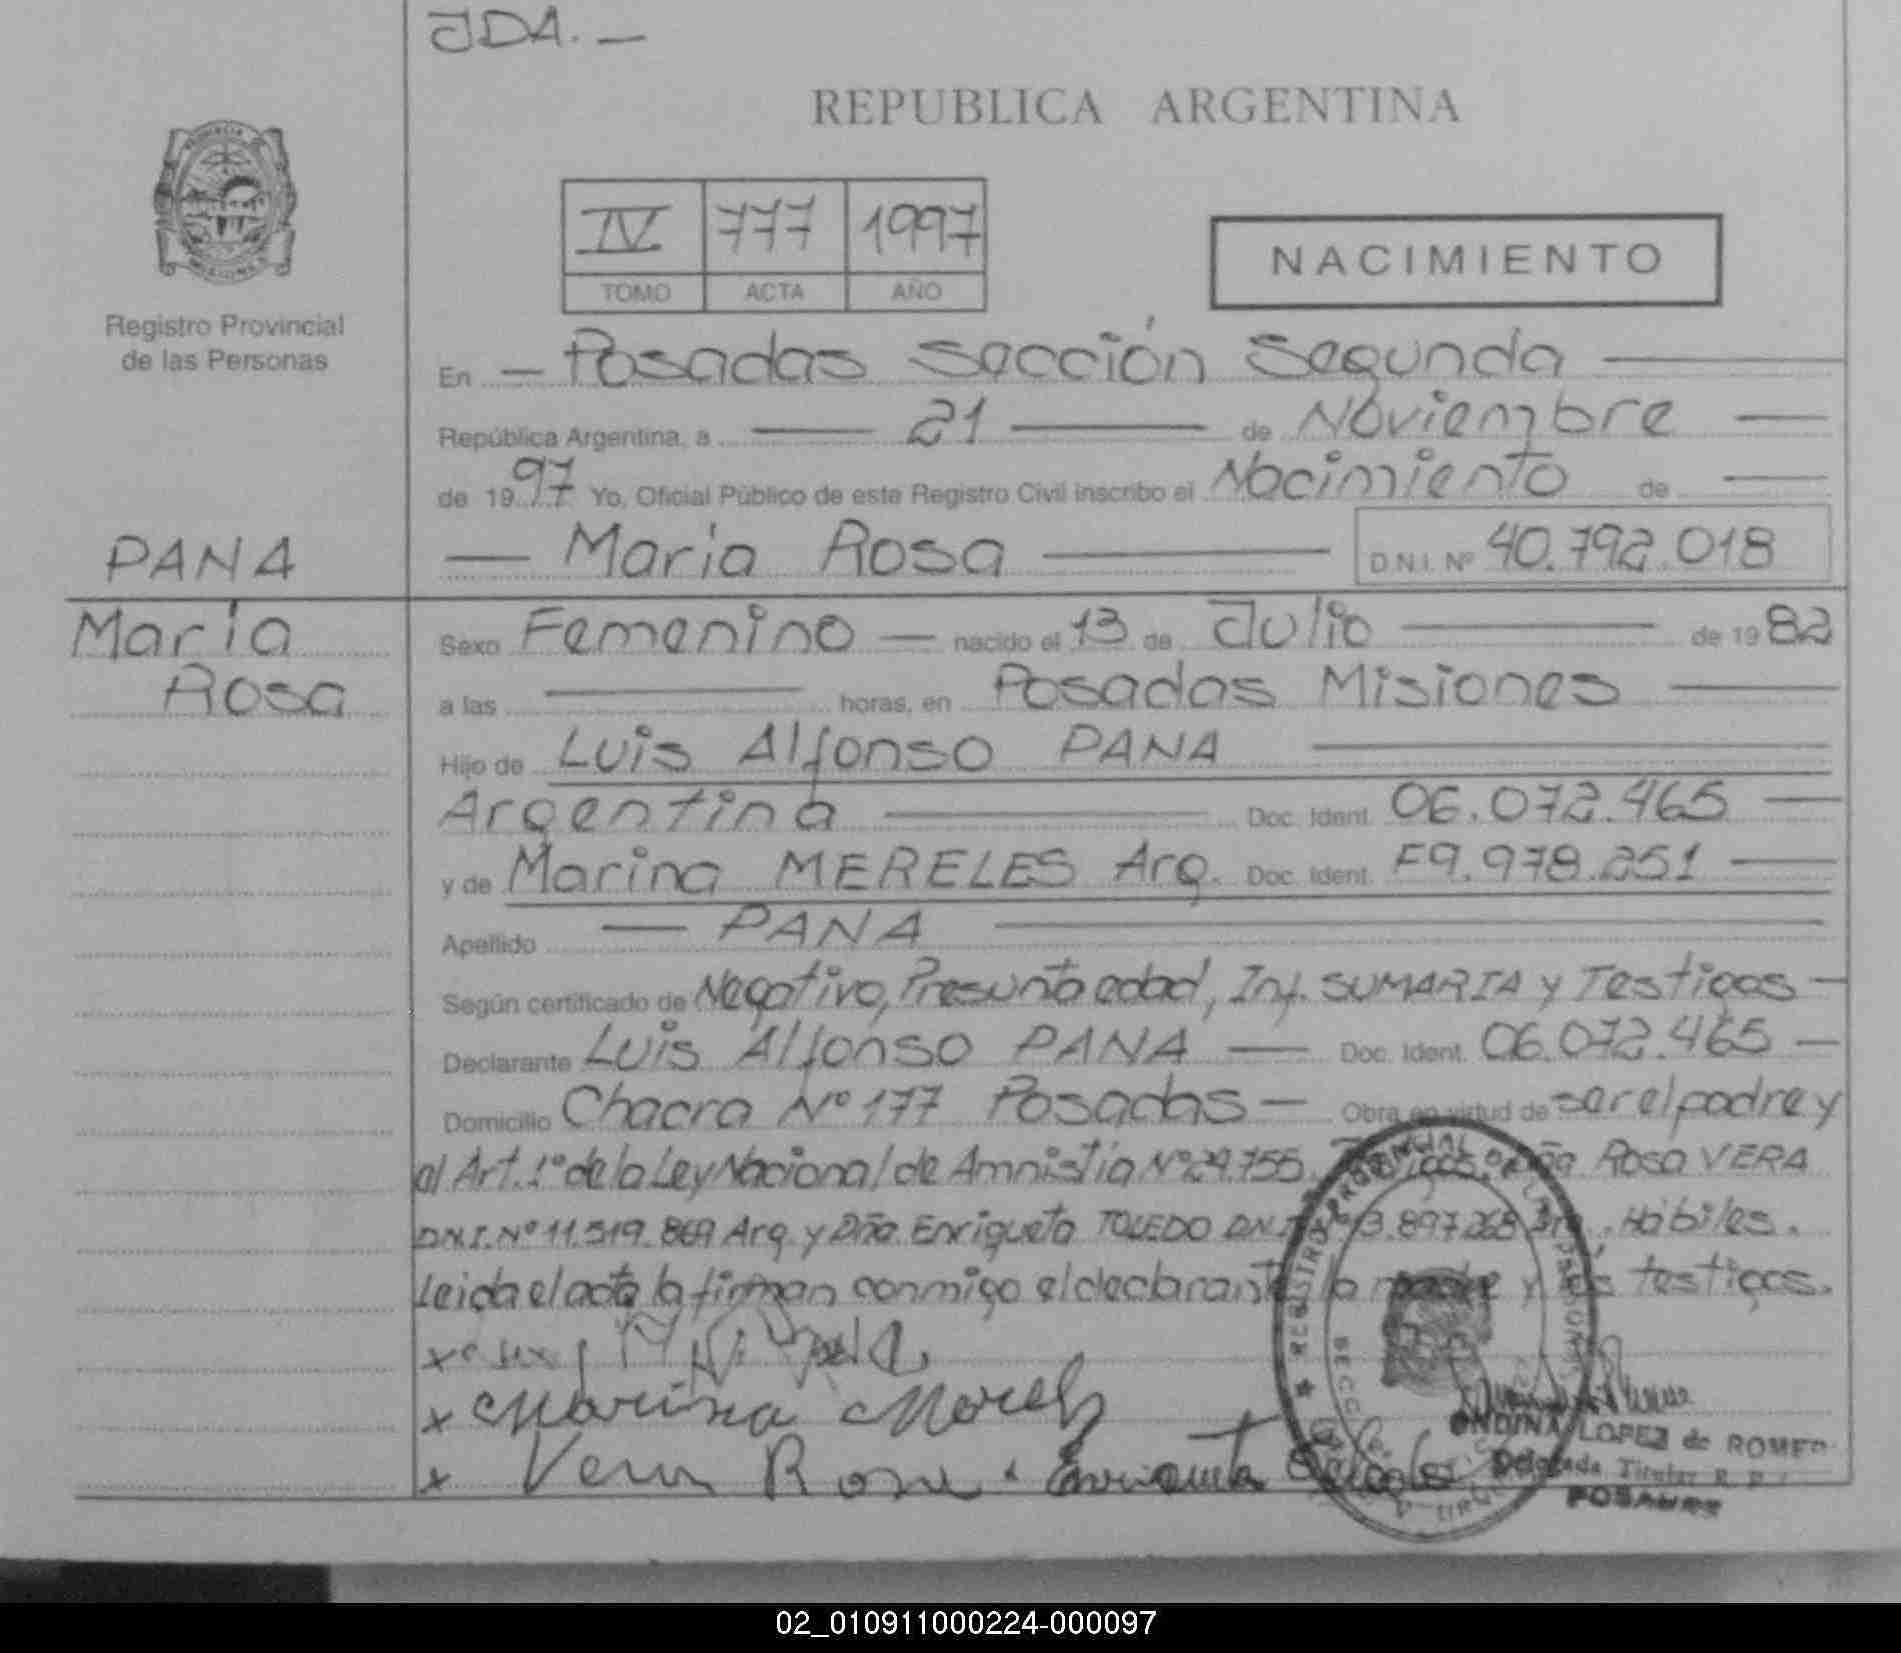 JDA. —
REPUBLICA ARGENTINA
IV 777 1997
TOMO ACTA AÑO
NACIMIENTO
Registro Provincial
de las Personas
En — Posadas Sección Segunda —
República Argentina, a — 21 — de Noviembre —
de 1997 Yo, Oficial Público de este Registro Civil inscribo el Nacimiento de —
PANA
— Maria Rosa — D.N.I. Nº 40.792.018
María
Rosa
Sexo Femenino — nacido el 13 de Julio — de 1982
a las — horas, en Posadas Misiones —
Hijo de Luis Alfonso PANA —
Argentina — Doc. Ident. 06.072.465 —
y de Marina MERELES Arg. Doc. Ident. F9.978.251 —
Apellido — PANA —
Según certificado de Negativo, Presunta edad, Inf. SUMARIA y Testigos —
Declarante Luis Alfonso PANA — Doc. Ident. 06.072.465 —
Domicilio Chacra Nº 177 Posadas — Obra en virtud de ser el padre y
al Art. 1º de la Ley Nacional de Amnistía Nº 24.755. Testigos: Doña Rosa VERA
D.N.I. Nº 11.519.869 Arg. y Dña. Enriqueta TOLEDO D.N.I. Nº 13.897.268 Arg., Hábiles.
Leida el acta la firman conmigo el declarante, la madre y los testigos.
x
x Marina Mereles
x Vera Rosa. Enriqueta Toledo
ONDINA LOPEZ de ROMERO
Delegada Titular R. P.
POSADAS
02_010911000224-000097